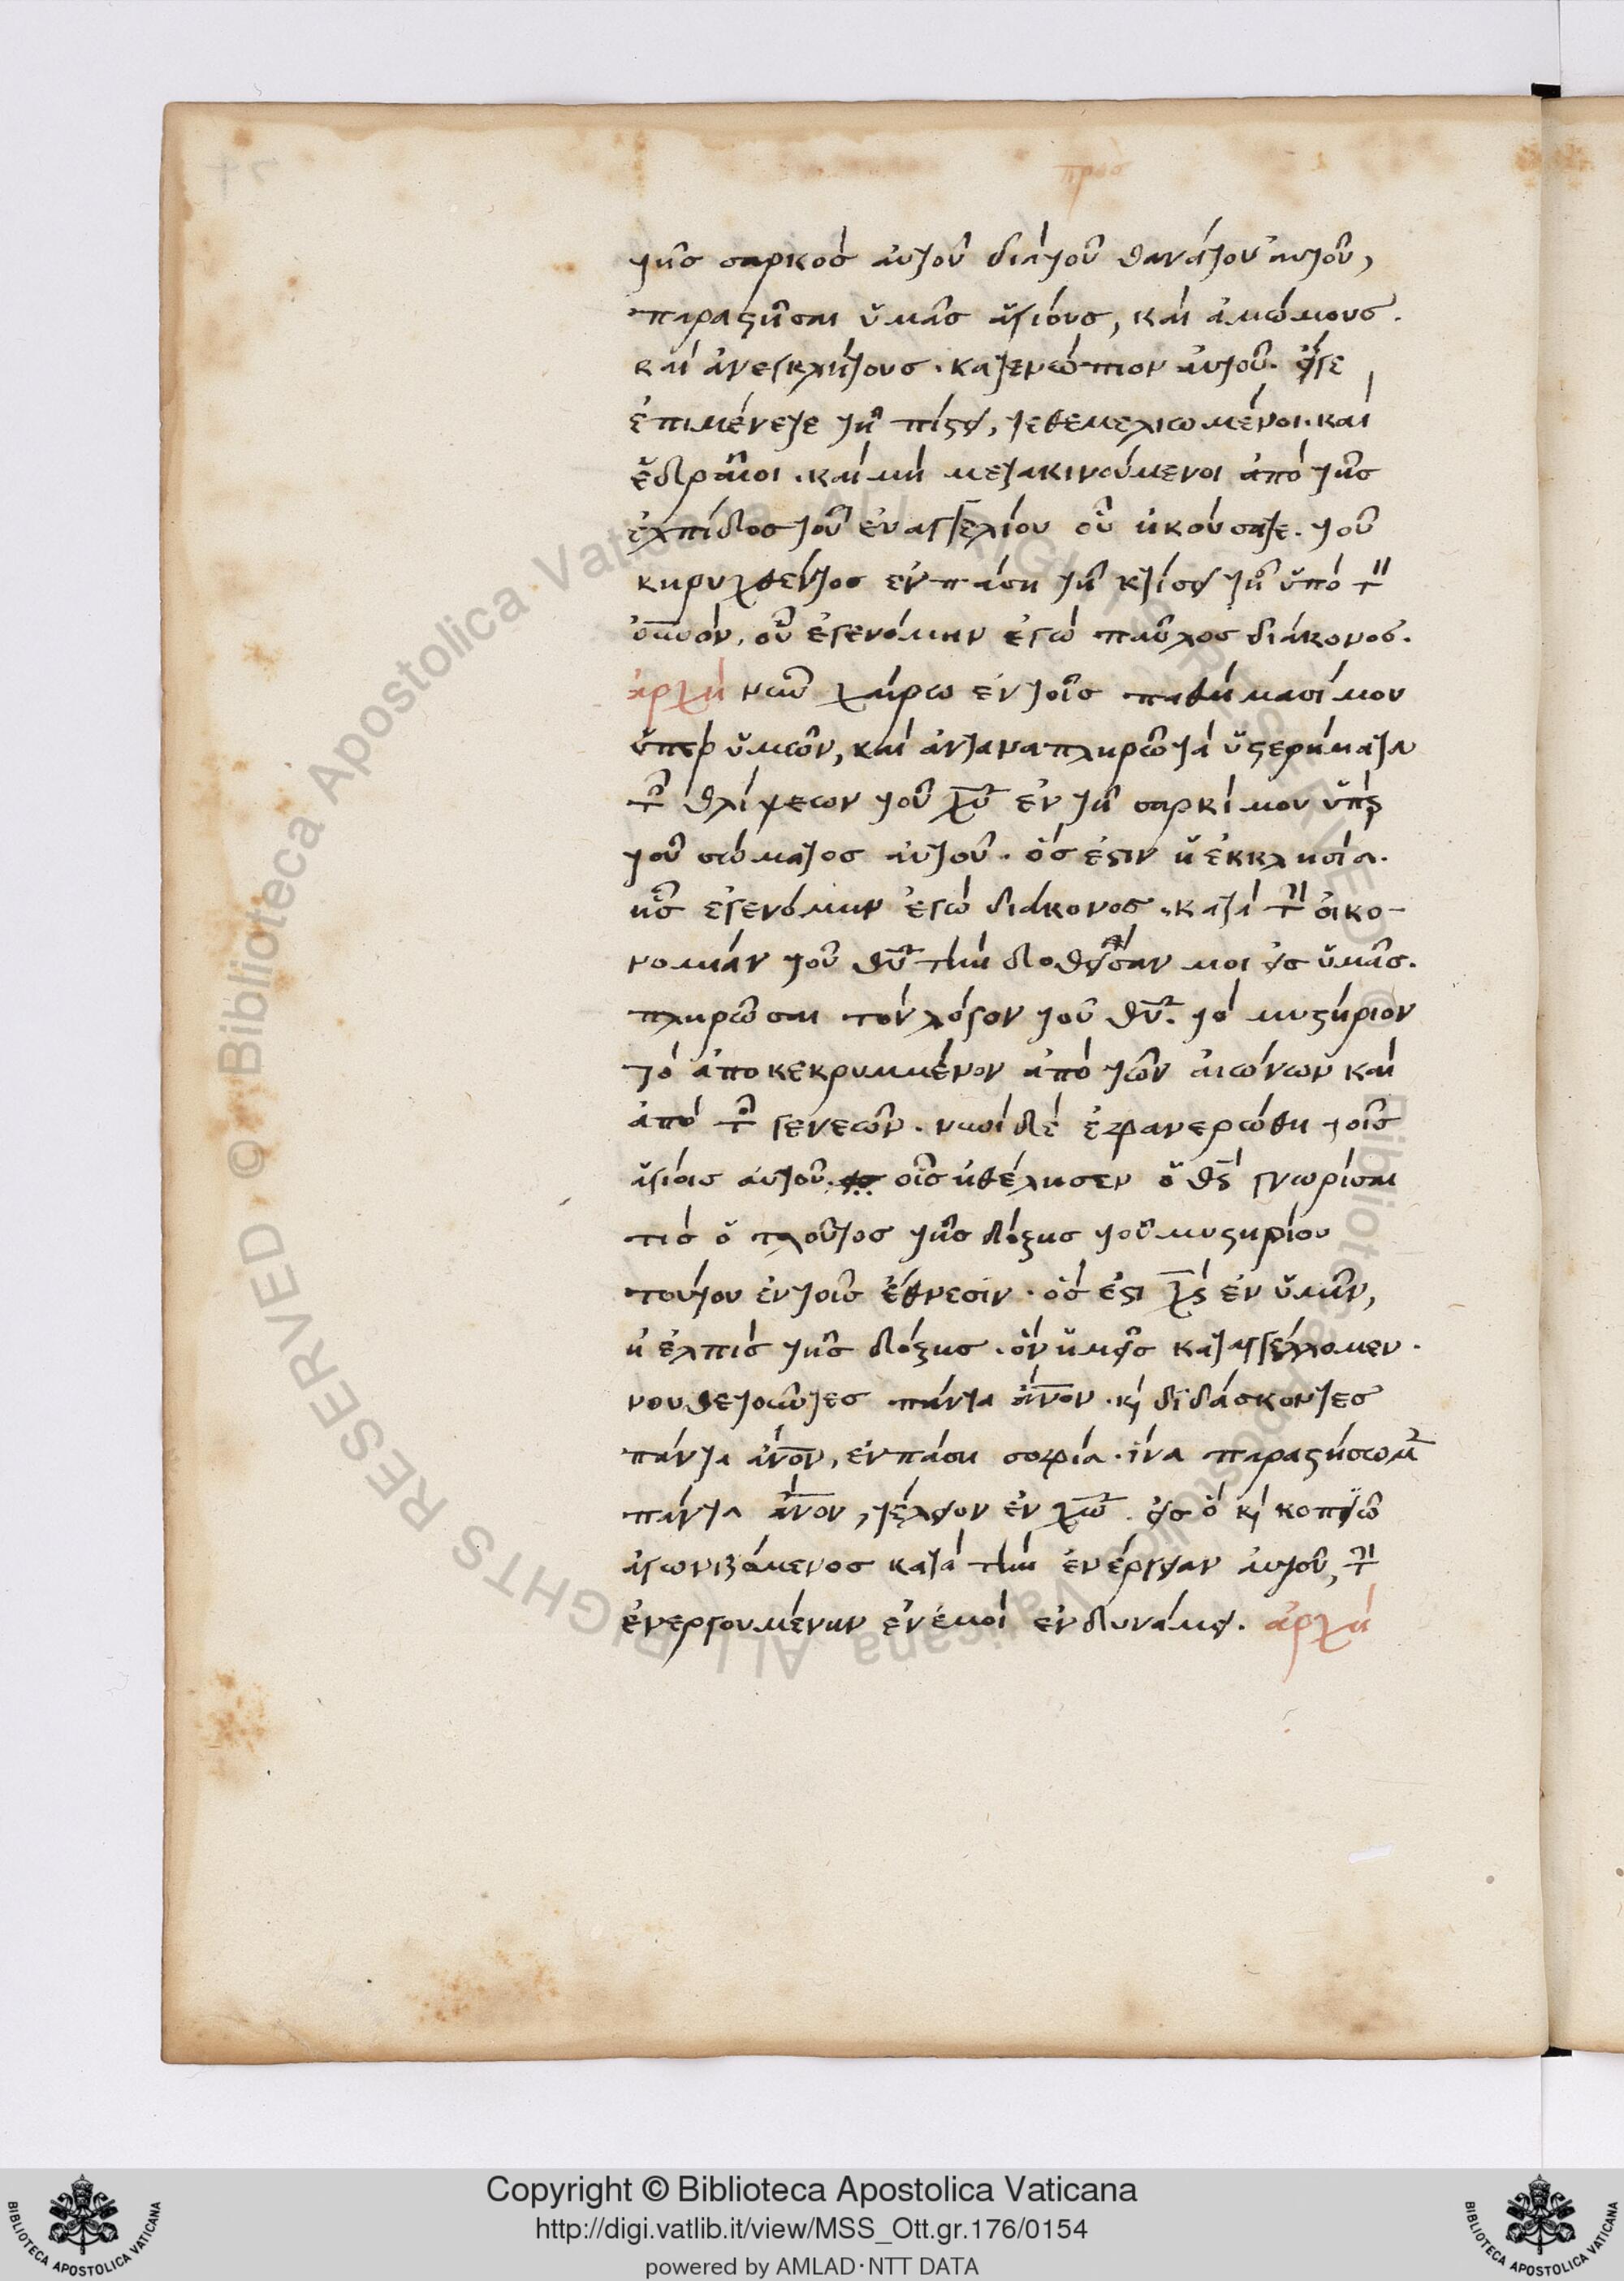 πρὸς
τῆς σαρκὸς αὐτοῦ διὰ τοῦ θανάτου αὐτοῦ,
παραστῆσαι ὑμᾶς ἁγίους, καὶ ἀμώμους.
καὶ ἀνεγκλήτους. κατενώπιον αὐτοῦ. εἴγε
ἐπιμένετε τῇ πίστει, τεθεμελιωμένοι. καὶ
ἑδραῖοι. καὶ μὴ μετακινούμενοι ἀπὸ τῆς
ἐλπίδος τοῦ εὐαγγελίου οὗ ἠκούσατε. τοῦ
κηρυχθέντος ἐν πάση τῇ κτίσει τῇ ὑπὸ τὸν
οὐνὸν, οὗ ἐγενόμην ἐγὼ παῦλος διάκονος.
ἀρχὴ νῦν χαίρω ἐν τοῖς παθήμασί μου
ὑπὲρ ὑμῶν, καὶ ἀνταναπληρῶ τὰ ὑστερήματα
τῶν θλίψεων τοῦ χῦ ἐν τῇ σαρκί μου ὑπὲρ
τοῦ σώματος αὐτοῦ. ὅς ἐστιν ἡ ἐκκλησία.
ἧς ἐγενόμην ἐγὼ διάκονος. κατὰ τὴν οἰκο-
νομίαν τοῦ θῦ τὴν δοθεῖσαν μοι εἰς ὑμᾶς.
πληρῶσαι τὸν λόγον τοῦ θῦ. τὸ μυστήριον
τὸ ἀποκεκρυμμένον ἀπὸ τῶν αἰώνων καὶ
ἀπὸ τῶν γενεῶν. νυνὶ δὲ ἐφανερώθη τοῖς
ἁγίοις αὐτοῦ. οἷς ἠθέλησεν ὁ θς γνωρίσαι
τίς ὁ πλοῦτος τῆς δόξης τοῦ μυστηρίου
τούτου ἐν τοῖς ἔθνεσιν. ὅς ἐστι χς ἐν ὑμῖν,
ἡ ἐλπὶς τῆς δόξης. ὃν ἡμεῖς καταγγέλλομεν.
νουθετοῦντες πάντα ἄνον. κ διδάσκοντες
πάντα ἄνον, ἐν πάση σοφία. ἵνα παραστήσωμεν
πάντα ἄνον, τέλειον ἐν χῶ. εἰς ὃ κ κοπιῶ
ἀγωνιζόμενος κατὰ τὴν ἐνέργειαν αὐτοῦ, τὴν
ἐνεργουμένην ἐν ἐμοὶ ἐν δυνάμει. ἀρχὴ
© Biblioteca Apostolica Vaticana ALL RIGHTS RESERVED
Copyright © Biblioteca Apostolica Vaticana
http://digi.vatlib.it/view/MSS_Ott.gr.176/0154
powered by AMLAD·NTT DATA
BIBLIOTECA APOSTOLICA VATICANA
BIBLIOTECA APOSTOLICA VATICANA